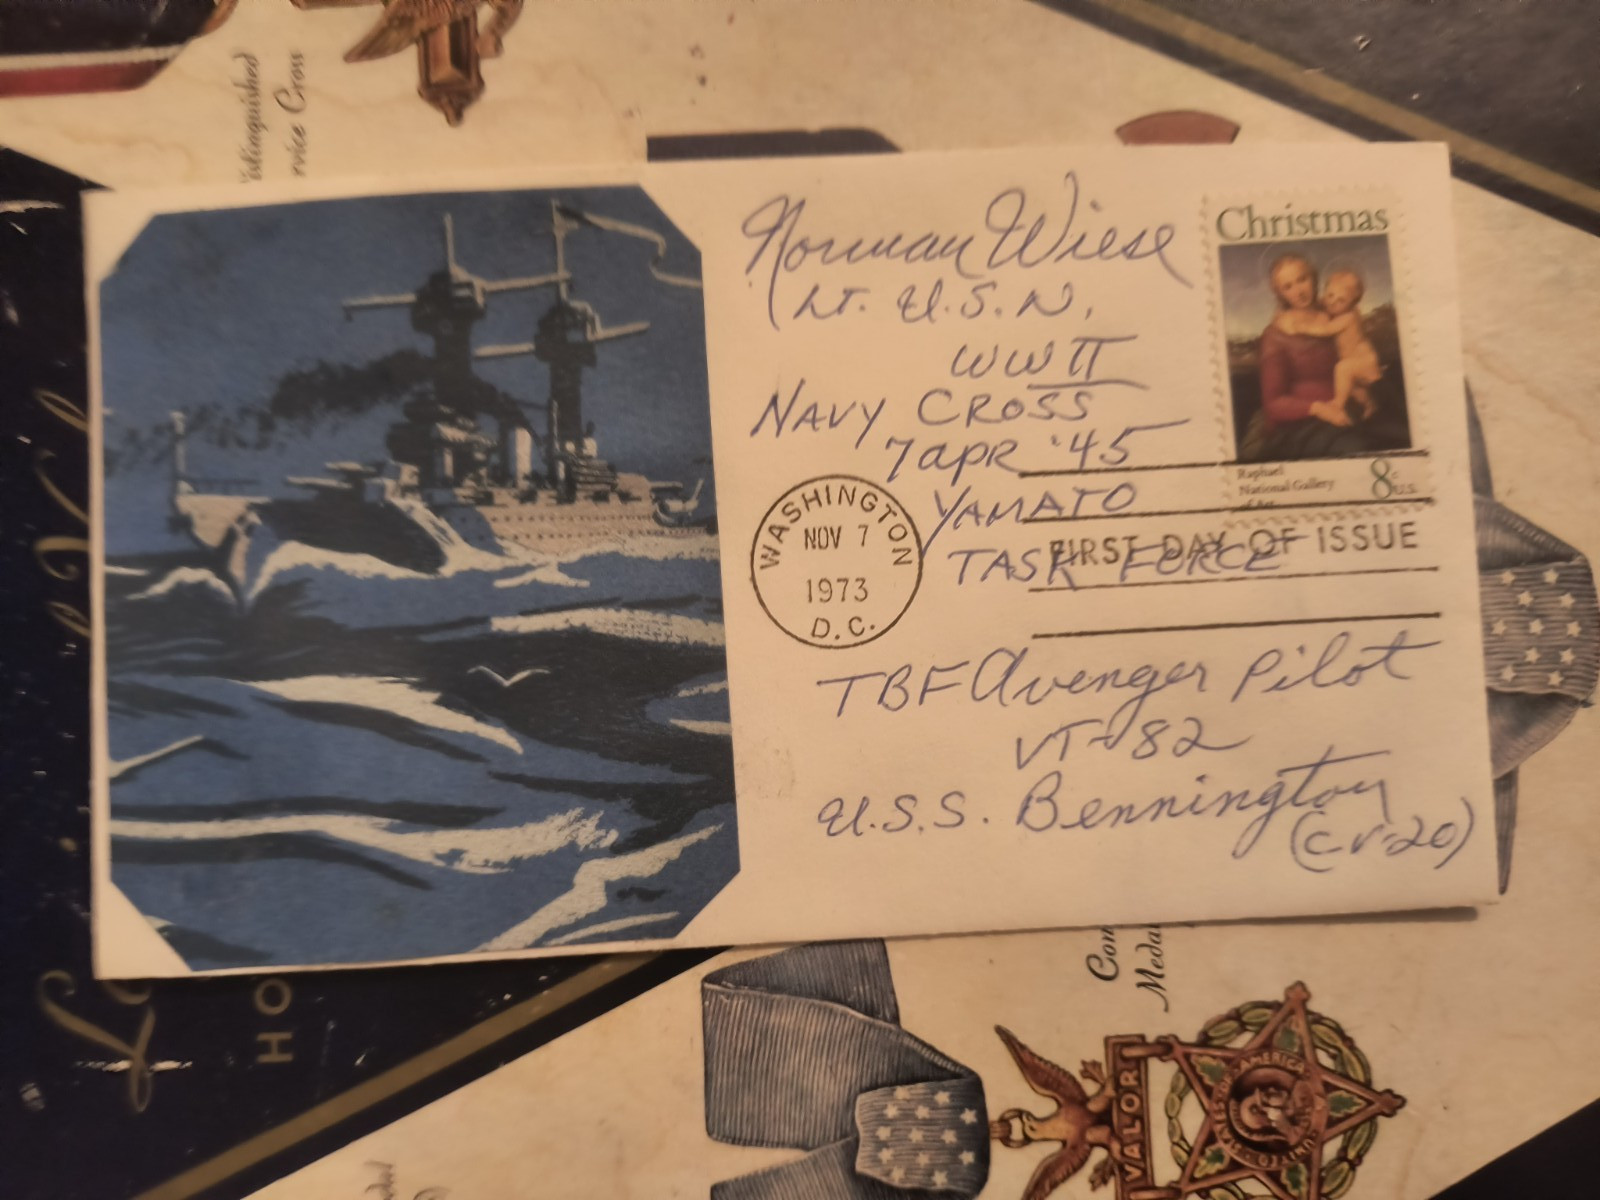 Distinguished
Service Cross
Norman Wiese
Lt. U.S.N.
WWII
NAVY CROSS
7 APR '45
YAMATO
TASK FORCE
TBF Avenger Pilot
VT-82
U.S.S. Bennington
(CV-20)
Christmas
Raphael
National Gallery
of Art
8c
U.S.
WASHINGTON
NOV 7
1973
D.C.
FIRST DAY OF ISSUE
HO
VALOR
UNITED STATES OF AMERICA